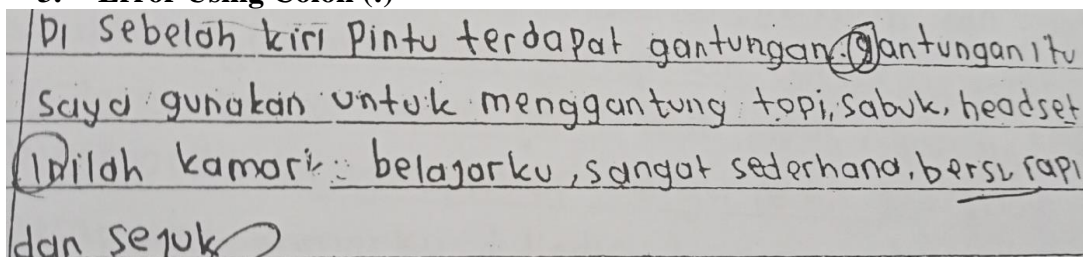 Di sebelah kiri pintu terdapat gantungan. gantungan itu
saya gunakan untuk menggantung topi, sabuk, headset
Inilah kamar belajarku, sangat sederhana, rapi
dan sejuk